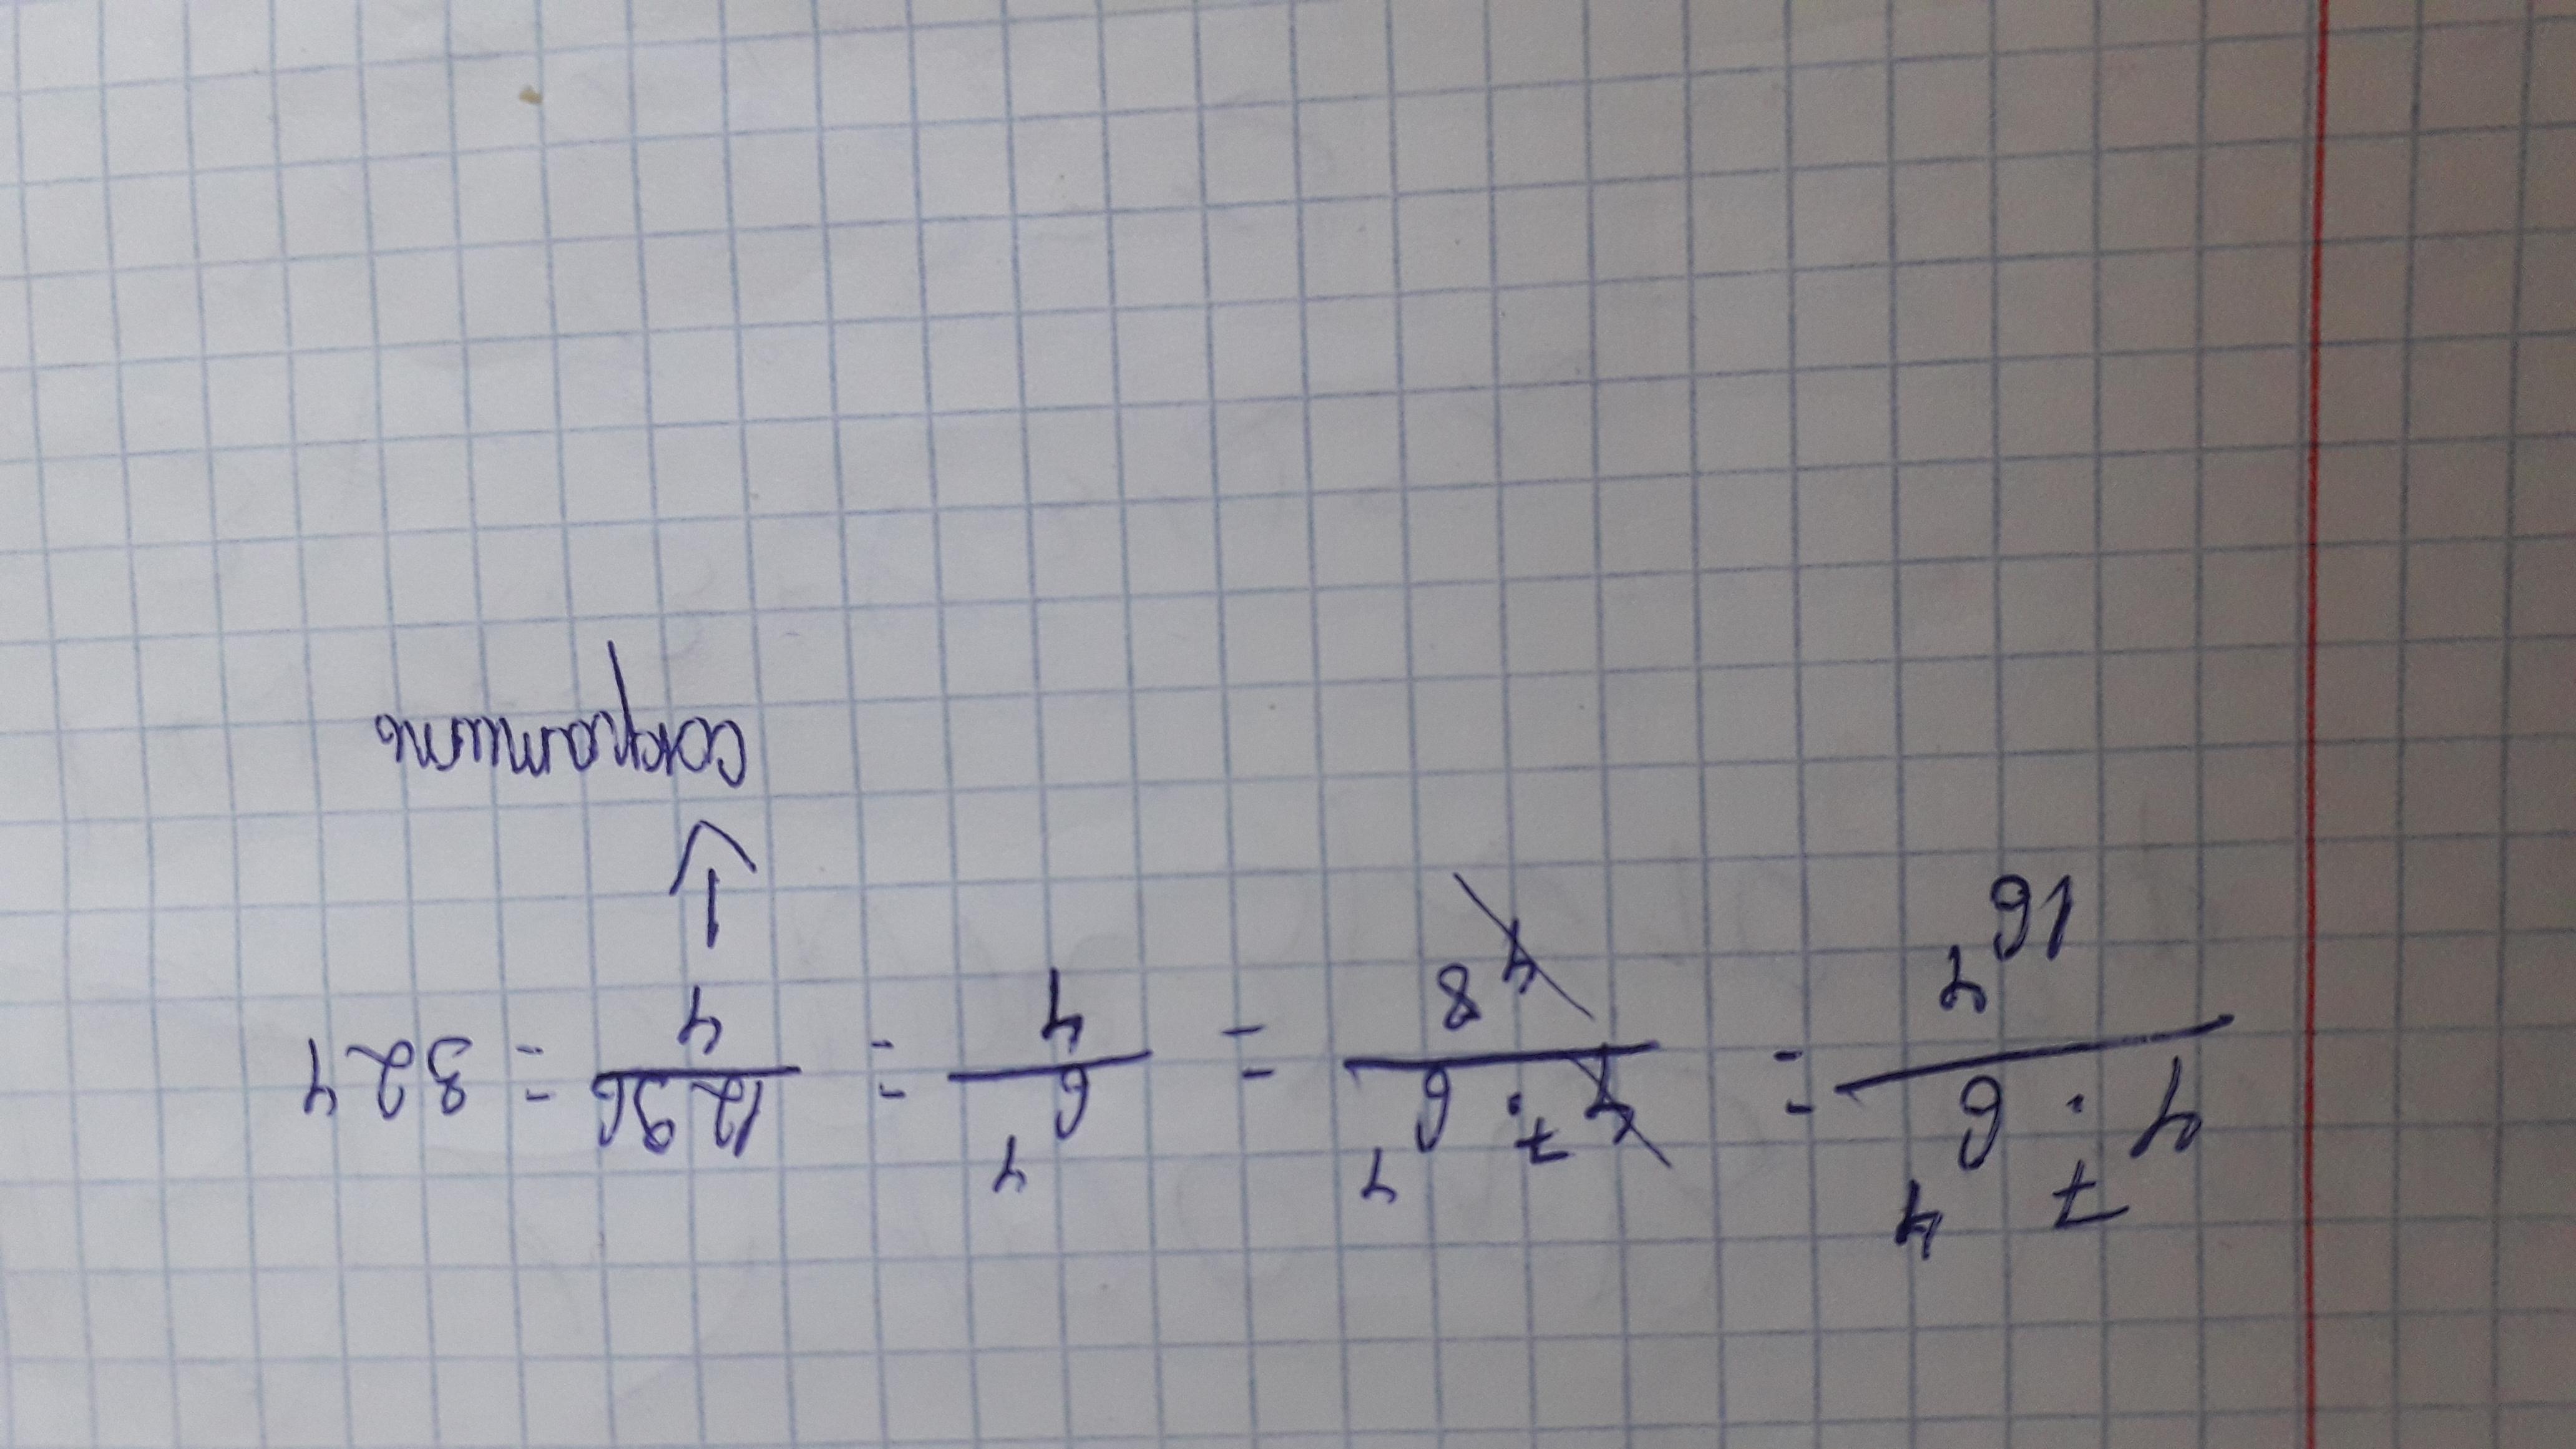 4⁷ · 6⁴ / 16⁴ = 4⁷ · 6⁴ / 4⁸ = 6⁴ / 4 = 1296 / 4 = 324
↓
сократить